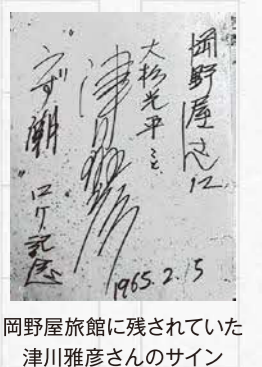 岡野屋さん江
大杉光平こと
津川雅彦
"うず潮"ロケ記念
1965.2.15
岡野屋旅館に残されていた
津川雅彦さんのサイン